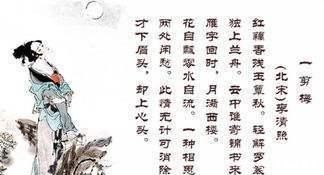 一剪梅
(北宋)李清照
红藕香残玉簟秋。轻解罗裳
独上兰舟。云中谁寄锦书来
雁字回时，月满西楼。
花自飘零水自流。一种相思
两处闲愁。此情无计可消除
才下眉头，却上心头。